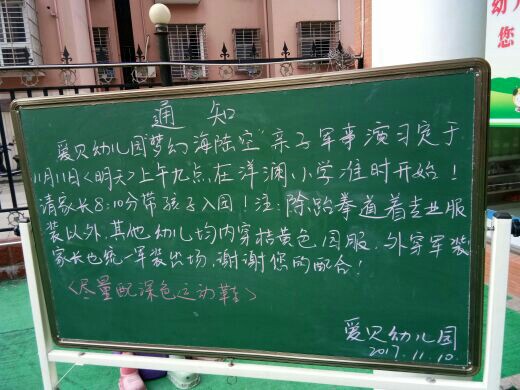 幼
您
通知
爱贝幼儿园“梦幻海陆空”亲子军事演习定于
11月11日<明天>上午九点,在洋澜小学准时开始!
请家长8:10分带孩子入园!注:除跆拳道着专业服
装以外,其他幼儿均内穿桔黄色园服,外穿军装
家长也统一军装出场,谢谢您的配合!
<尽量配深色运动鞋>
爱贝幼儿园
2017.11.10.